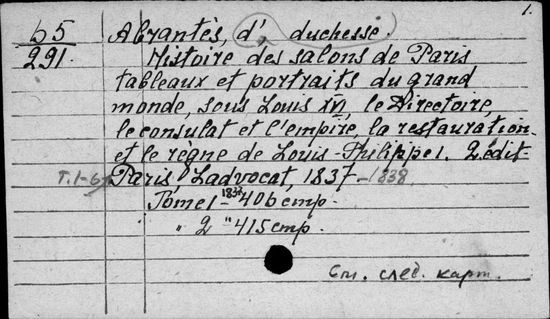 1.
55 Abrantès, d', duchesse.
291. Histoire des salons de Paris
tableaux et portraits du grand
monde, sous Louis XVI, le Directoire,
le consulat et l'empire, la restauration
et le règne de Louis-Philippe I. 2. édit.
T. 1-6 Paris, Ladvocat, 1837-1838.
Tome 1 - 1837 406 стр.
" 2 " 415 стр.
См. след. карт.